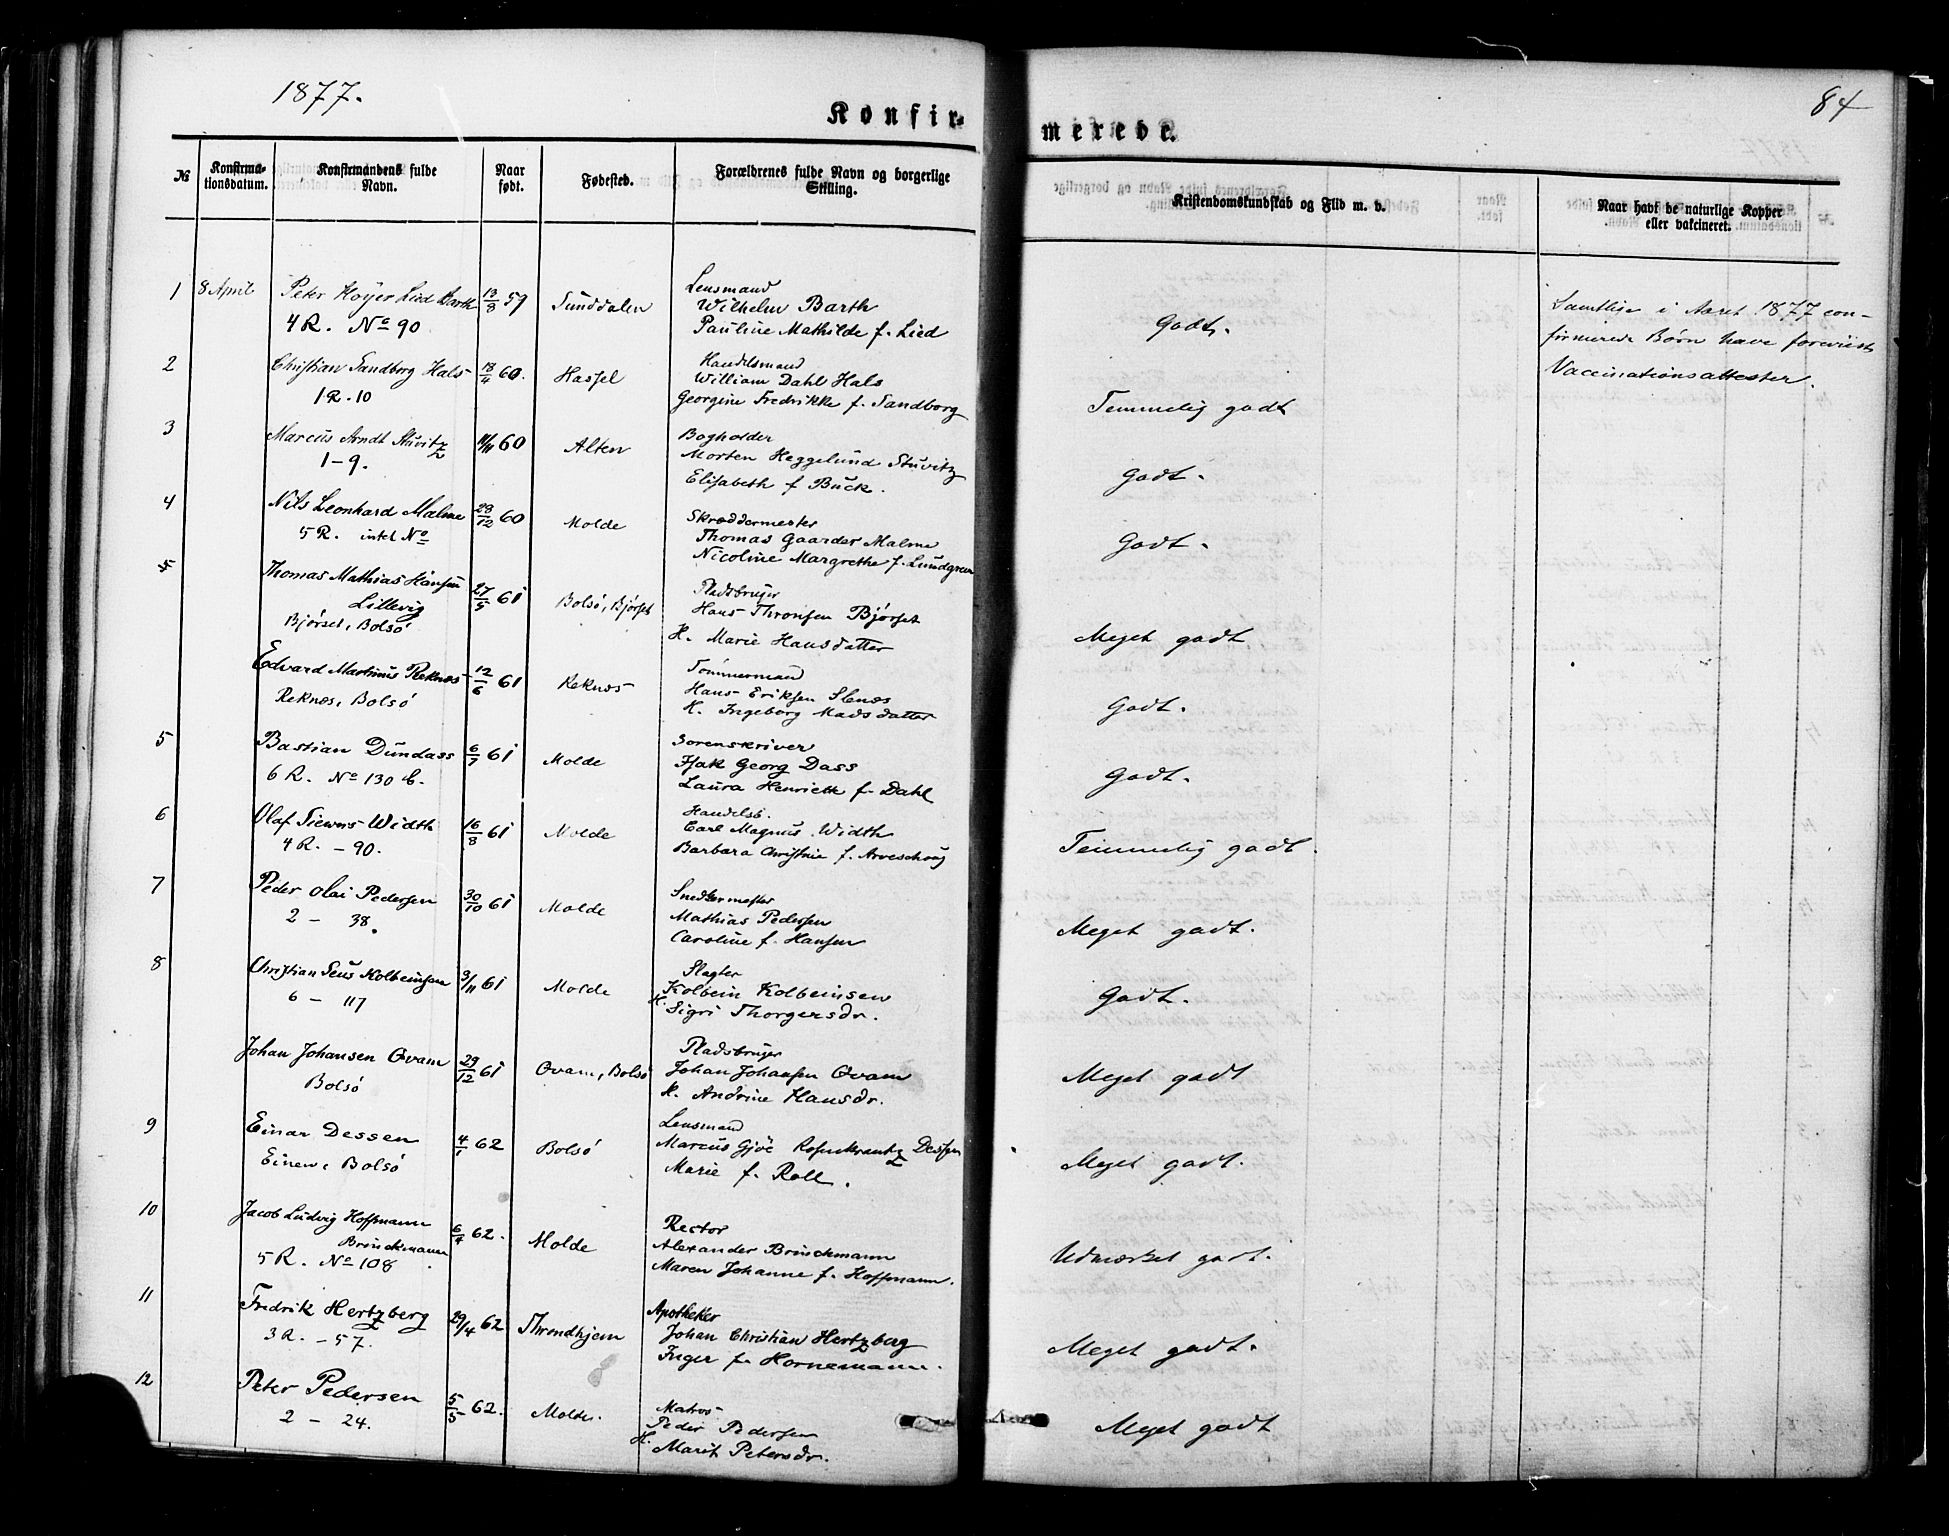 1877.
84
Konfir-
merede.
№
Konfirma-
tionsdatum.
Konfirmandens fulde
Navn.
Naar
født.
Fødested.
Forældrenes fulde Navn og borgerlige
Stilling.
Kristendomskundskab og Flid m. v.
Naar havt de naturlige Kopper
eller vakcineret.
1 8 April Peter Høyer Lied Barth 13/8 59 Sunddalen Lensmand
Wilhelm Barth
4 R. No 90 Pauline Mathilde f. Lied
Godt.
Samtlige i Aaret 1877 con-
firmerede Børn have foreviist
Vaccinationsattester.
2 Christian Sandborg Hals 13/4 60. Hassel Handelsmand
William Dahl Hals
1 R. 10 Georgine Fredrikke f. Sandborg
Temmelig godt
3 Marcus Arndt Stuvitz 11/11 60 Alten Bogholder
Morten Heggelund Stuvitz
1 - 9. Elisabeth f Buck.
Godt.
4 Nils Leonhard Malme 28/12 60 Molde Skræddermester
Thomas Gaarder Malme
5 R. intet No Nicoline Margrethe f. Lundgreen
Godt.
5 Thomas Mathias Hansen 27/5 61 Bolsø, Bjørset Pladsbruger
Lillevig Hans Thronsen Bjørset
Bjørset, Bolsø H. Marie Hansdatter
Meget godt
Edvard Martinus Reknæs 12/6 61 Reknæs Tømmermand
Hans Eriksen
Reknæs, Bolsø H. Ingeborg Madsdatter
Godt.
5 Bastian Dundass 6/7 61 Molde Sorenskriver
Isak Georg Dass
6 R. No 130 b. Laura Henriette f. Dahl
Godt.
6 Olaf Siewers Width 16/8 61 Molde Handelsb.
Carl Magnus Width
4 R. - 90. Barbara Christine f. Arveschoug
Temmelig godt.
7 Peder Olai Pedersen 30/10 61 Molde Snedkermester
Mathias Pedersen
2 - 38. Caroline f. Hansen
Meget godt.
8 Christian Seus Kolbeinsen 3/11 61 Molde Slagter
Kolbein Kolbeinsen
6 - 117 H. Sigri Thorgersdr.
Godt.
Johan Johansen Qvam 29/12 61 Qvam, Bolsø Pladsbruger
Johan Johansen Qvam
Bolsø H. Andrine Hansdr.
Meget godt
9 Einar Dessen 4/1 62 Bolsø Lensmand
Marcus Gjøe Rosenkrantz Dessen
Bolsø Marie f. Roll.
Meget godt.
10 Jacob Ludvig Hoffmann 6/4 62. Molde Rector
Brinckmann Alexander Brinckmann
5 R. No 108 Maren Johanne f. Hoffmann.
Udmærket godt.
11 Fredrik Hertzberg 29/4 62 Throndhjem Apotheker
Johan Christian Hertzberg
3 R. - 57. Inger f. Hornemann.
Meget godt.
12 Peter Pedersen 5/5 62. Molde. Matros
Peder Pedersen
2 - 24. H. Marit Petersdr.
Meget godt